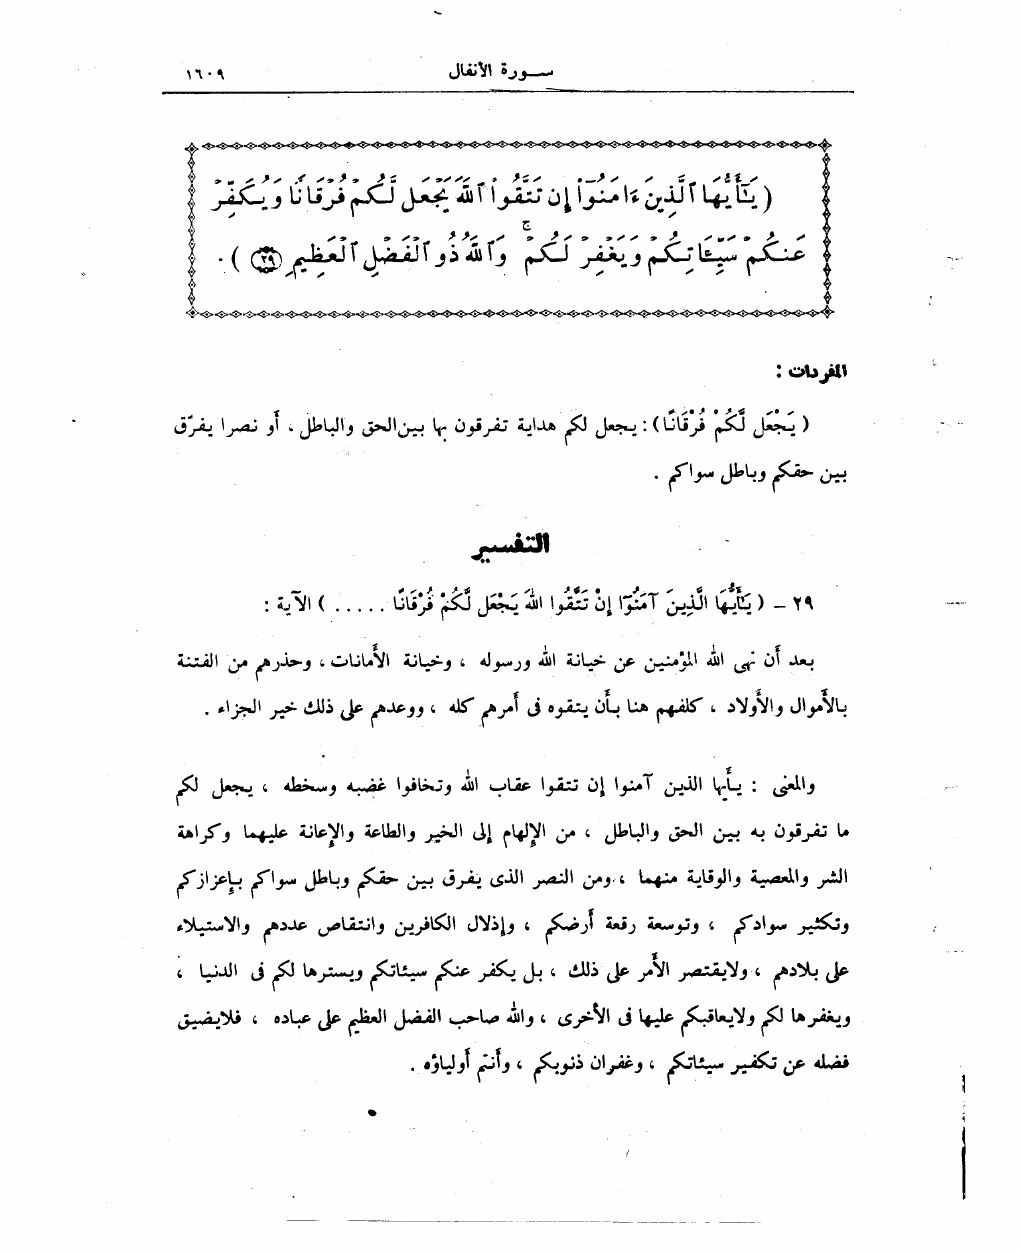 سورة الأنفال ١٦٠٩
(يَـٰٓأَيُّهَا ٱلَّذِينَ ءَامَنُوٓا۟ إِن تَتَّقُوا۟ ٱللَّهَ يَجْعَل لَّكُمْ فُرْقَانًا وَيُكَفِّرْ
عَنكُمْ سَيِّـَٔاتِكُمْ وَيَغْفِرْ لَكُمْ ۚ وَٱللَّهُ ذُو ٱلْفَضْلِ ٱلْعَظِيمِ ٢٩ ) .
المفردات :
( يَجْعَل لَّكُمْ فُرْقَانًا ) : يجعل لكم هداية تفرقون بها بين الحق والباطل ، أو نصرا يفرّق
بين حقكم وباطل سواكم .
التفسير
٢٩ - ( يَـٰٓأَيُّهَا الَّذِينَ آمَنُوٓا إِنْ تَتَّقُوا اللهَ يَجْعَل لَّكُمْ فُرْقَانًا ..... ) الآية :
بعد أن نهى الله المؤمنين عن خيانة الله ورسوله ، وخيانة الأمانات ، وحذرهم من الفتنة
بالأموال والأولاد ، كلفهم هنا بأن يتقوه فى أمرهم كله ، ووعدهم على ذلك خير الجزاء .
والمعنى : يأيها الذين آمنوا إن تتقوا عقاب الله وتخافوا غضبه وسخطه ، يجعل لكم
ما تفرقون به بين الحق والباطل ، من الإلهام إلى الخير والطاعة والإعانة عليهما وكراهة
الشر والمعصية والوقاية منهما ، ومن النصر الذى يفرق بين حقكم وباطل سواكم بإعزازكم
وتكثير سوادكم ، وتوسعة رقعة أرضكم ، وإذلال الكافرين وانتقاص عددهم والاستيلاء
على بلادهم ، ولايقتصر الأمر على ذلك ، بل يكفر عنكم سيئاتكم ويسترها لكم فى الدنيا ،
ويغفرها لكم ولايعاقبكم عليها فى الأخرى ، والله صاحب الفضل العظيم على عباده ، فلايضيق
فضله عن تكفير سيئاتكم ، وغفران ذنوبكم ، وأنتم أولياؤه .